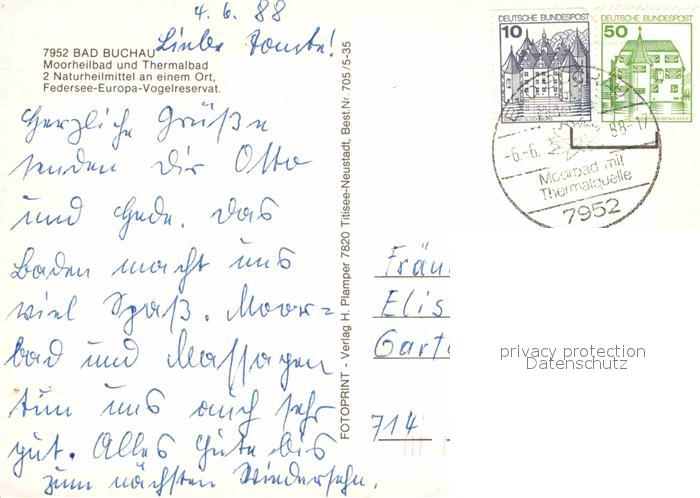 4. 6. 88
7952 BAD BUCHAU
Moorheilbad und Thermalbad
2 Naturheilmittel an einem Ort,
Federsee-Europa-Vogelreservat.
Liebe Tante!
Herzliche Grüße
senden Dir Otto
und Hede. Das
Baden macht uns
viel Spaß. Moor=
bad und Massagen
tun uns auch sehr
gut. Alles Gute bis
zum nächsten Wiedersehn.
FOTOPRINT - Verlag H. Plamper 7820 Titisee-Neustadt, Best.Nr. 705/5-35
DEUTSCHE BUNDESPOST
10
DEUTSCHE BUNDESPOST
50
-6.-6. 88-17
Moorbad mit
Thermalquelle
7952
Fräu
Elis
Garte
714
privacy protection
Datenschutz